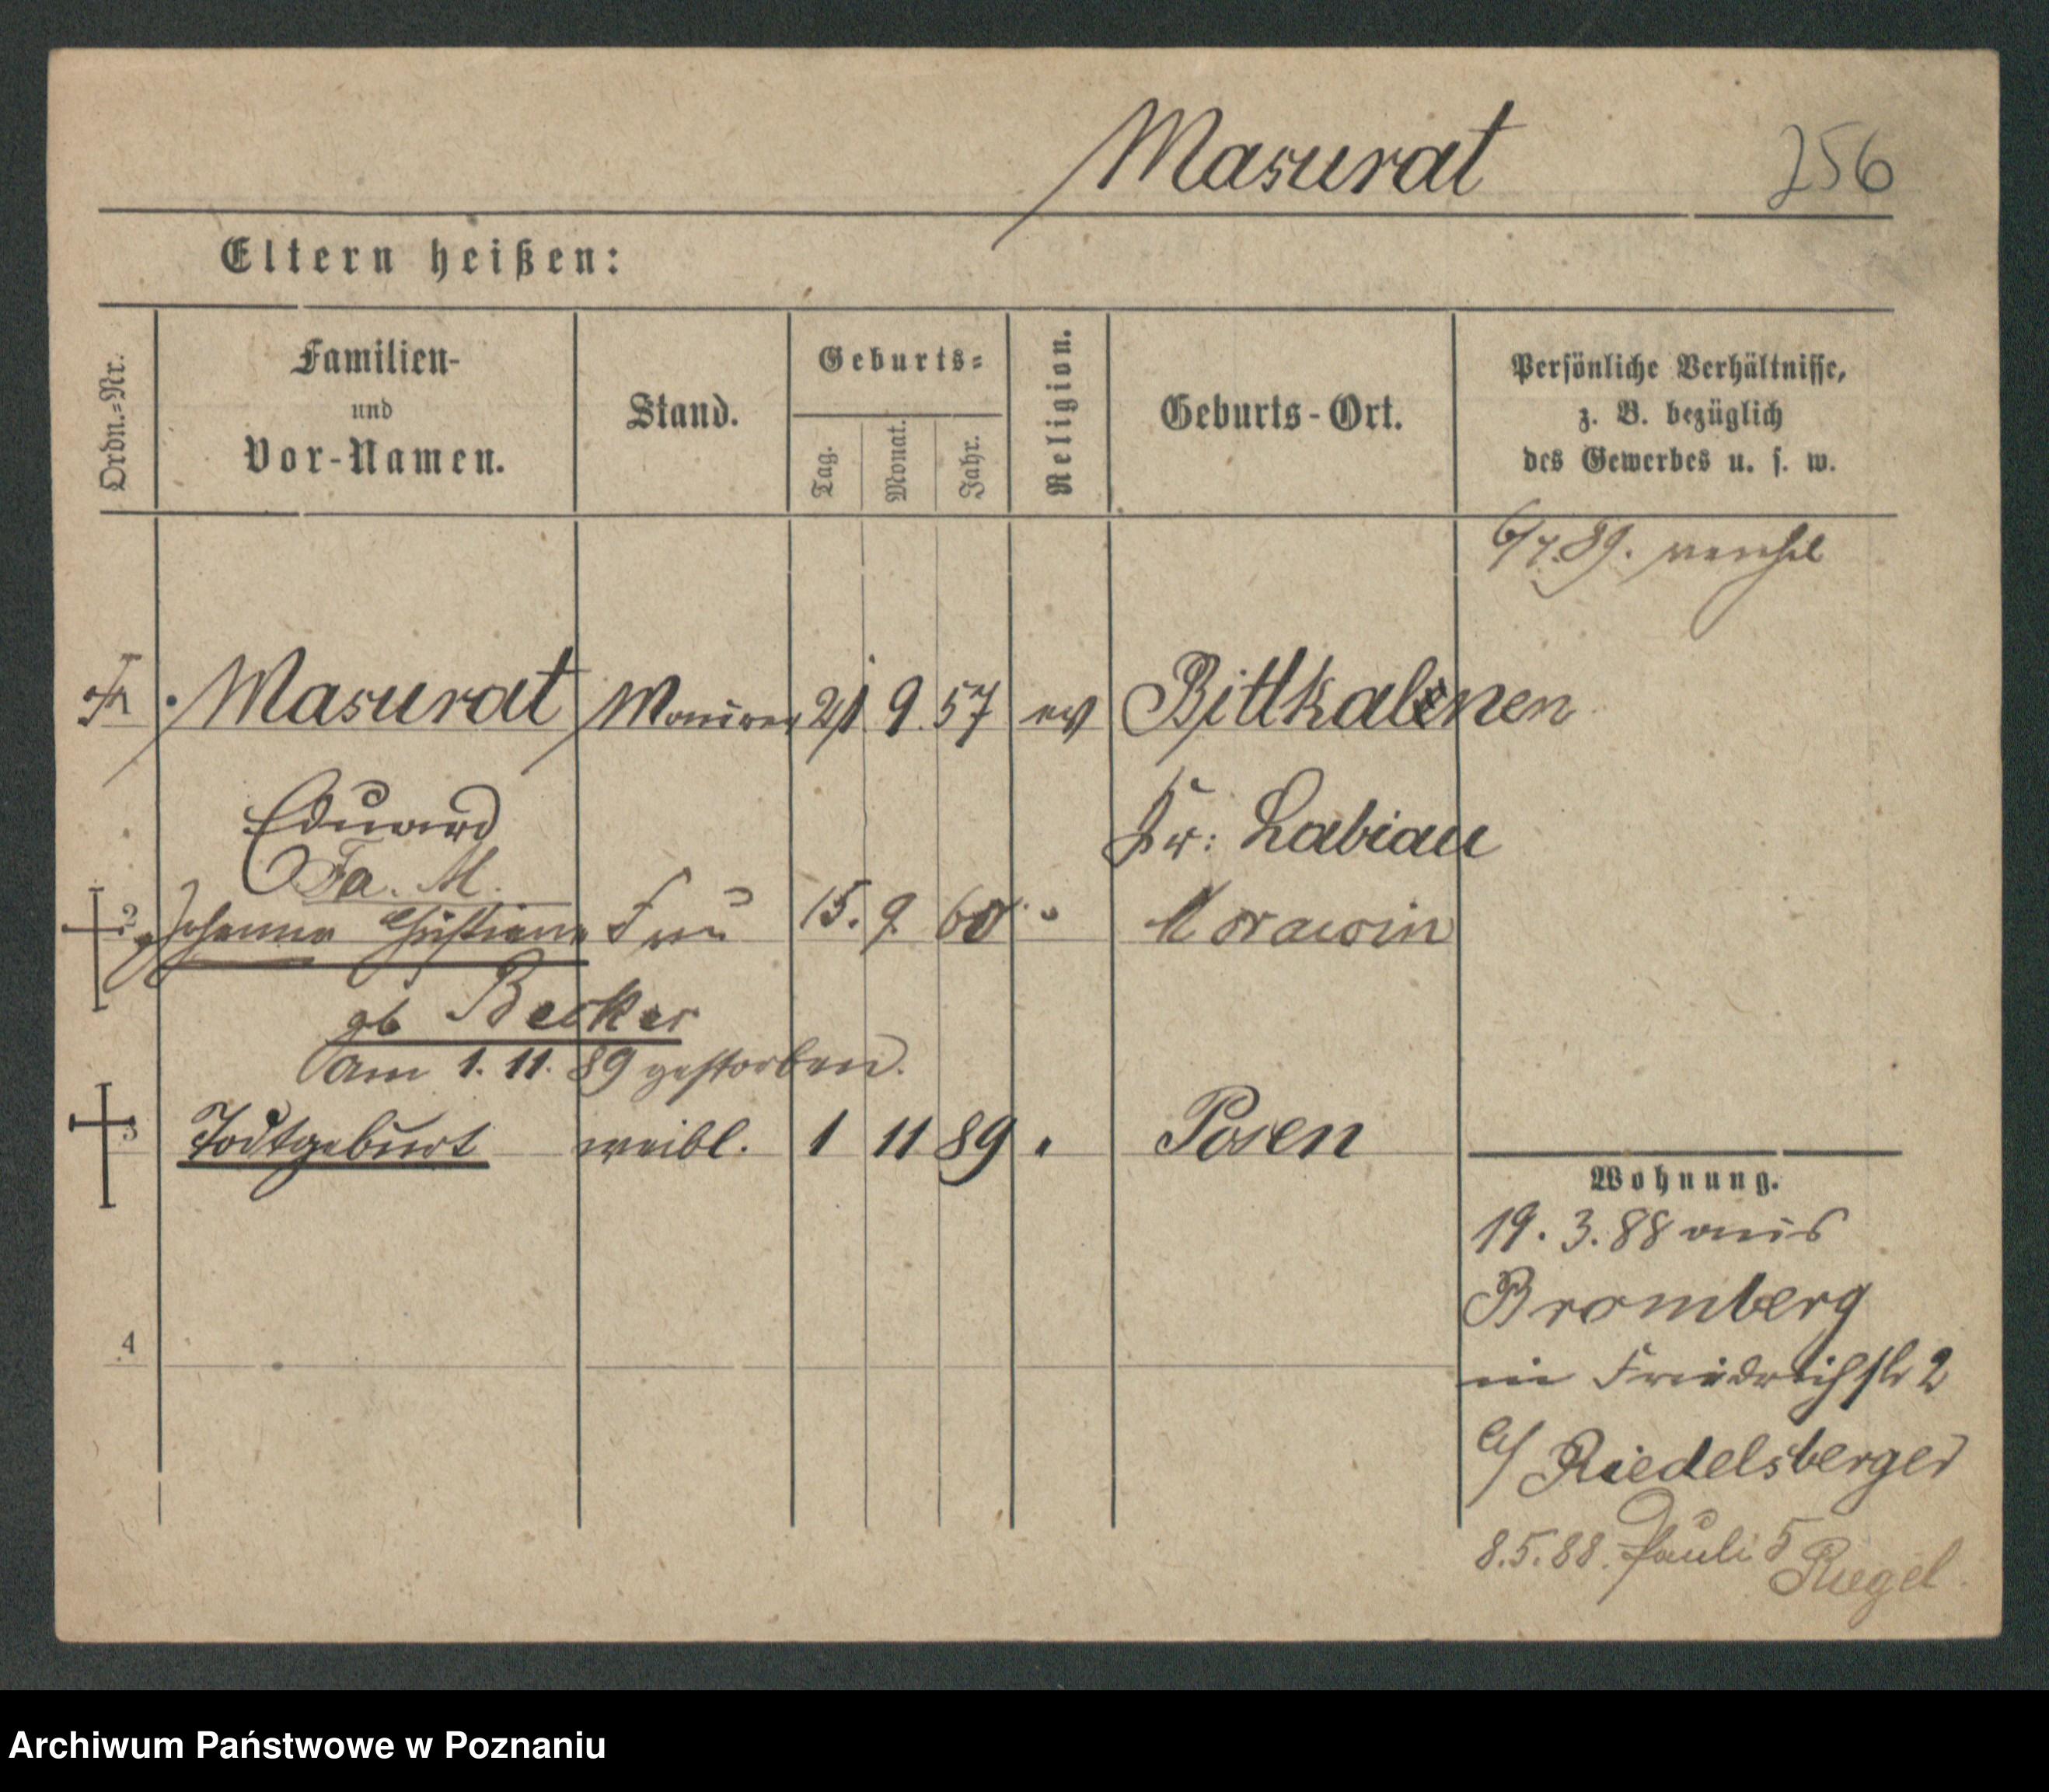 Masurat 256
Eltern heißen:
Ordn.=Nr.
Familien-
und
Vor-Namen.
Stand.
Geburts=
Tag.
Monat.
Jahr.
Religion.
Geburts-Ort.
Persönliche Verhältnisse,
z. B. bezüglich
des Gewerbes u. s. w.
6/7.89.
Masurat Maurer 21 9. 57 ev Bittkalenen
Eduard Kr: Labiau
Fa. M.
2 Johanna Christiane Frau 15. 9 60 " Morawin
gb Becker
am 1. 11. 89 gestorben.
3 Todtgeburt weibl. 1 11 89 " Posen
4
Wohnung.
19. 3. 88 aus
Bromberg
in Friedrichstr 2
c/ Riedelsberger
8.5.88. Pauli 5
Riegel
Archiwum Państwowe w Poznaniu